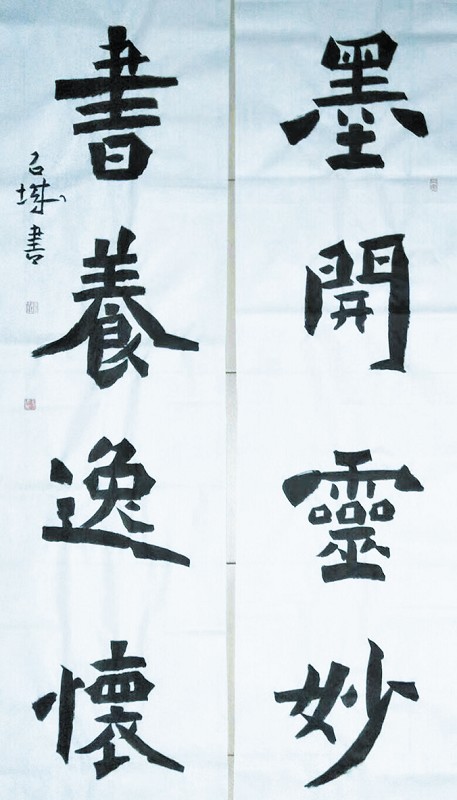 墨開靈妙
書養逸懷
石城書